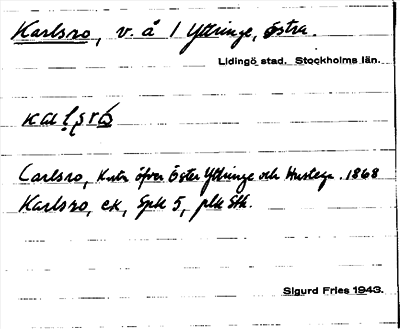 Karlsro, v. å 1 Yttringe, östra.
Lidingö stad. Stockholms län.
Carlsro, Karta öfver Öster Yttringe och Hustega. 1868
Karlsro, ek, Spk 5, plk Sth.
Sigurd Fries 1943.